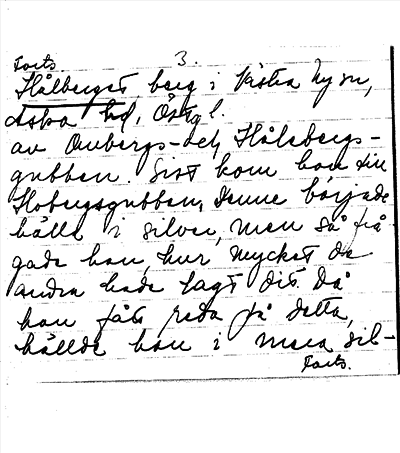 Forts. 3.
Hålberget, berg i Västra Ny sn,
Aska hd, Östgl.
av Ombergs- och Hålebergs-
gubben. Sist kom han till
Hobergsgubben, Denne började
hälla i silver, men så frå-
gade han, hur mycket de
andra hade lagt dit. Då
han fått reda på detta,
hällde han i mera sil-
Forts.